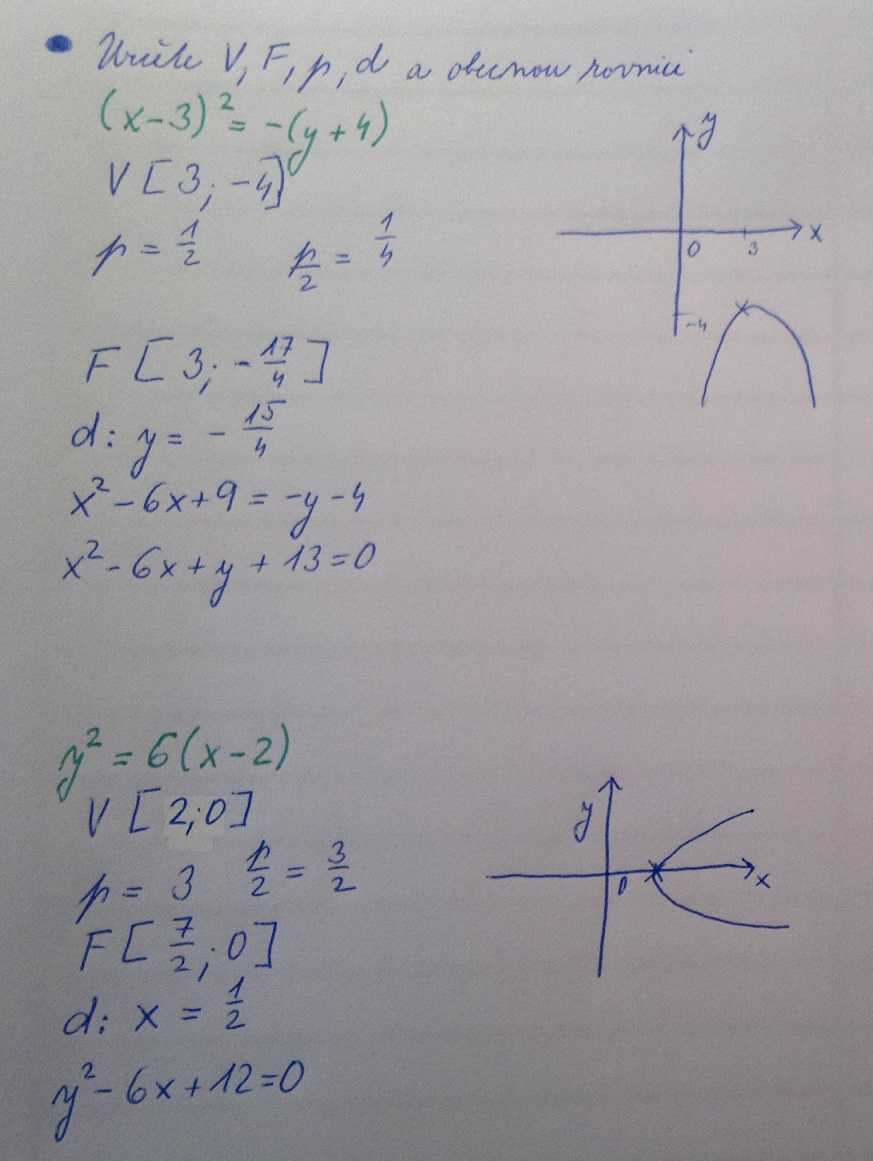 Určete V, F, p, d a obecnou rovnici
(x-3)² = -(y+4)
V [3; -4]
p = 1/2 p/2 = 1/4
F [3; -17/4]
d: y = -15/4
x² - 6x + 9 = -y - 4
x² - 6x + y + 13 = 0
y
0 3 x
-4
y² = 6(x-2)
V [2;0]
p = 3 p/2 = 3/2
F [7/2; 0]
d: x = 1/2
y² - 6x + 12 = 0
y
0 x